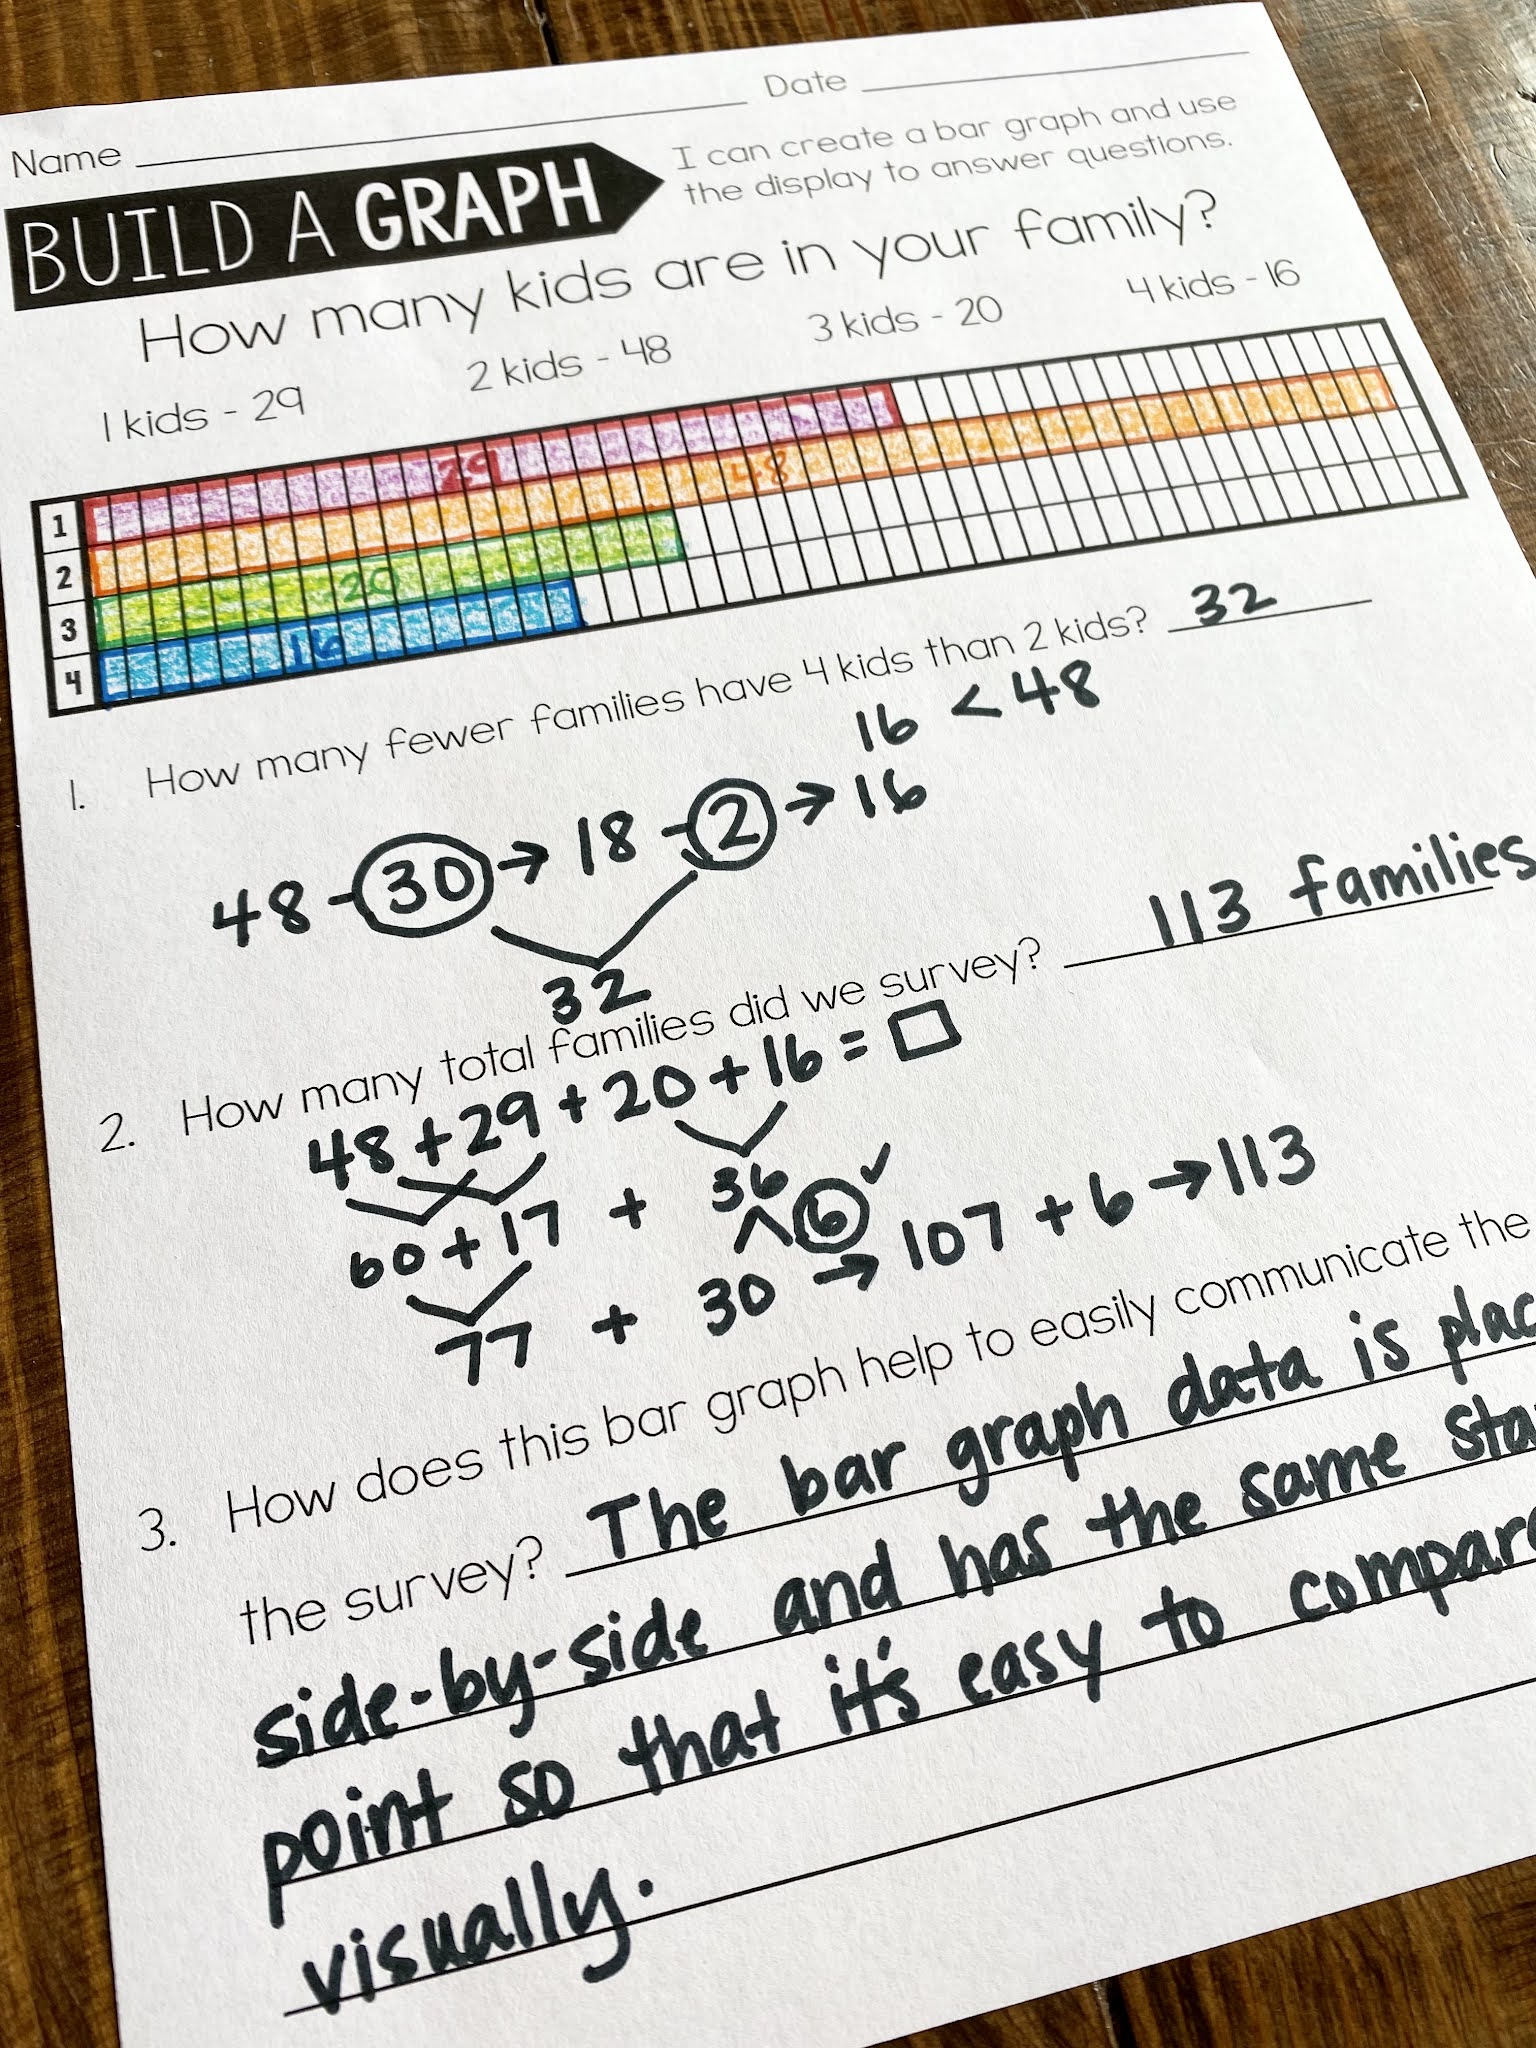 Name Date
BUILD A GRAPH
I can create a bar graph and use
the display to answer questions.
How many kids are in your family?
1 kids - 29 2 kids - 48 3 kids - 20 4 kids - 16
1 29
2 48
3 20
4 16
1. How many fewer families have 4 kids than 2 kids? 32
16 < 48
48 - 30 → 18 - 2 → 16
32
2. How many total families did we survey? 113 families
48 + 29 + 20 + 16 = □
60 + 17 + 36
6 ✓
77 + 30 → 107 + 6 → 113
3. How does this bar graph help to easily communicate the
the survey? The bar graph data is plac
side-by-side and has the same sta
point so that it's easy to compare
visually.